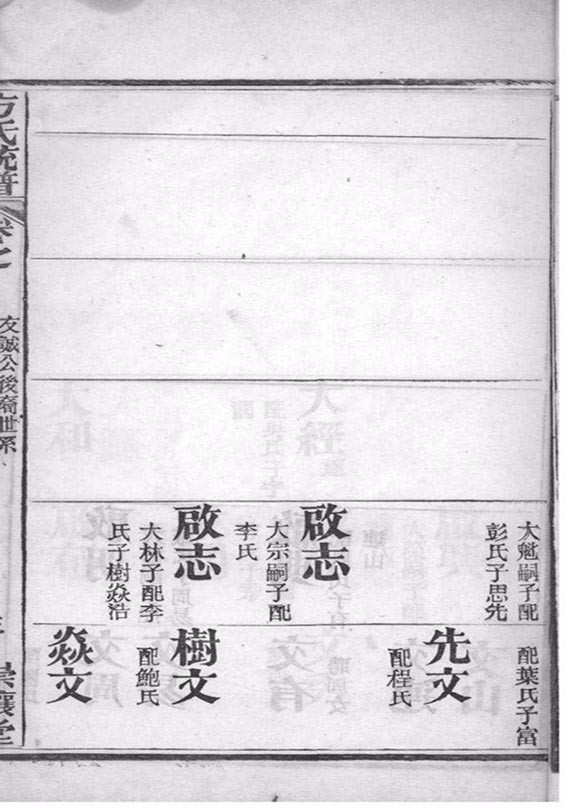 大魁嗣子配
彭氏子思先
啟志
大宗嗣子配
李氏
啟志
大林子配李
氏子樹焱浩
配葉氏子富
先文
配程氏
樹文
配鮑氏
焱文
方氏統譜
卷之
友誠公後裔世系
崇讓堂